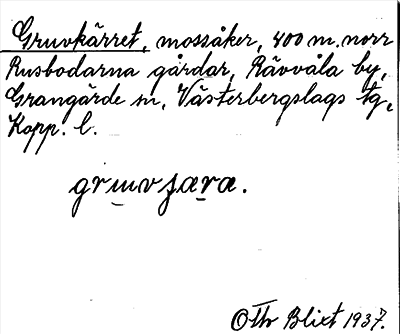 Gruvkärret, mossåker, 400 m. norr
Rusbodarna gårdar, Rävvåla by,
Grangärde sn, Västerbergslags tg,
Kopp. l.
gruvʃæra.
O Th Blixt 1937.